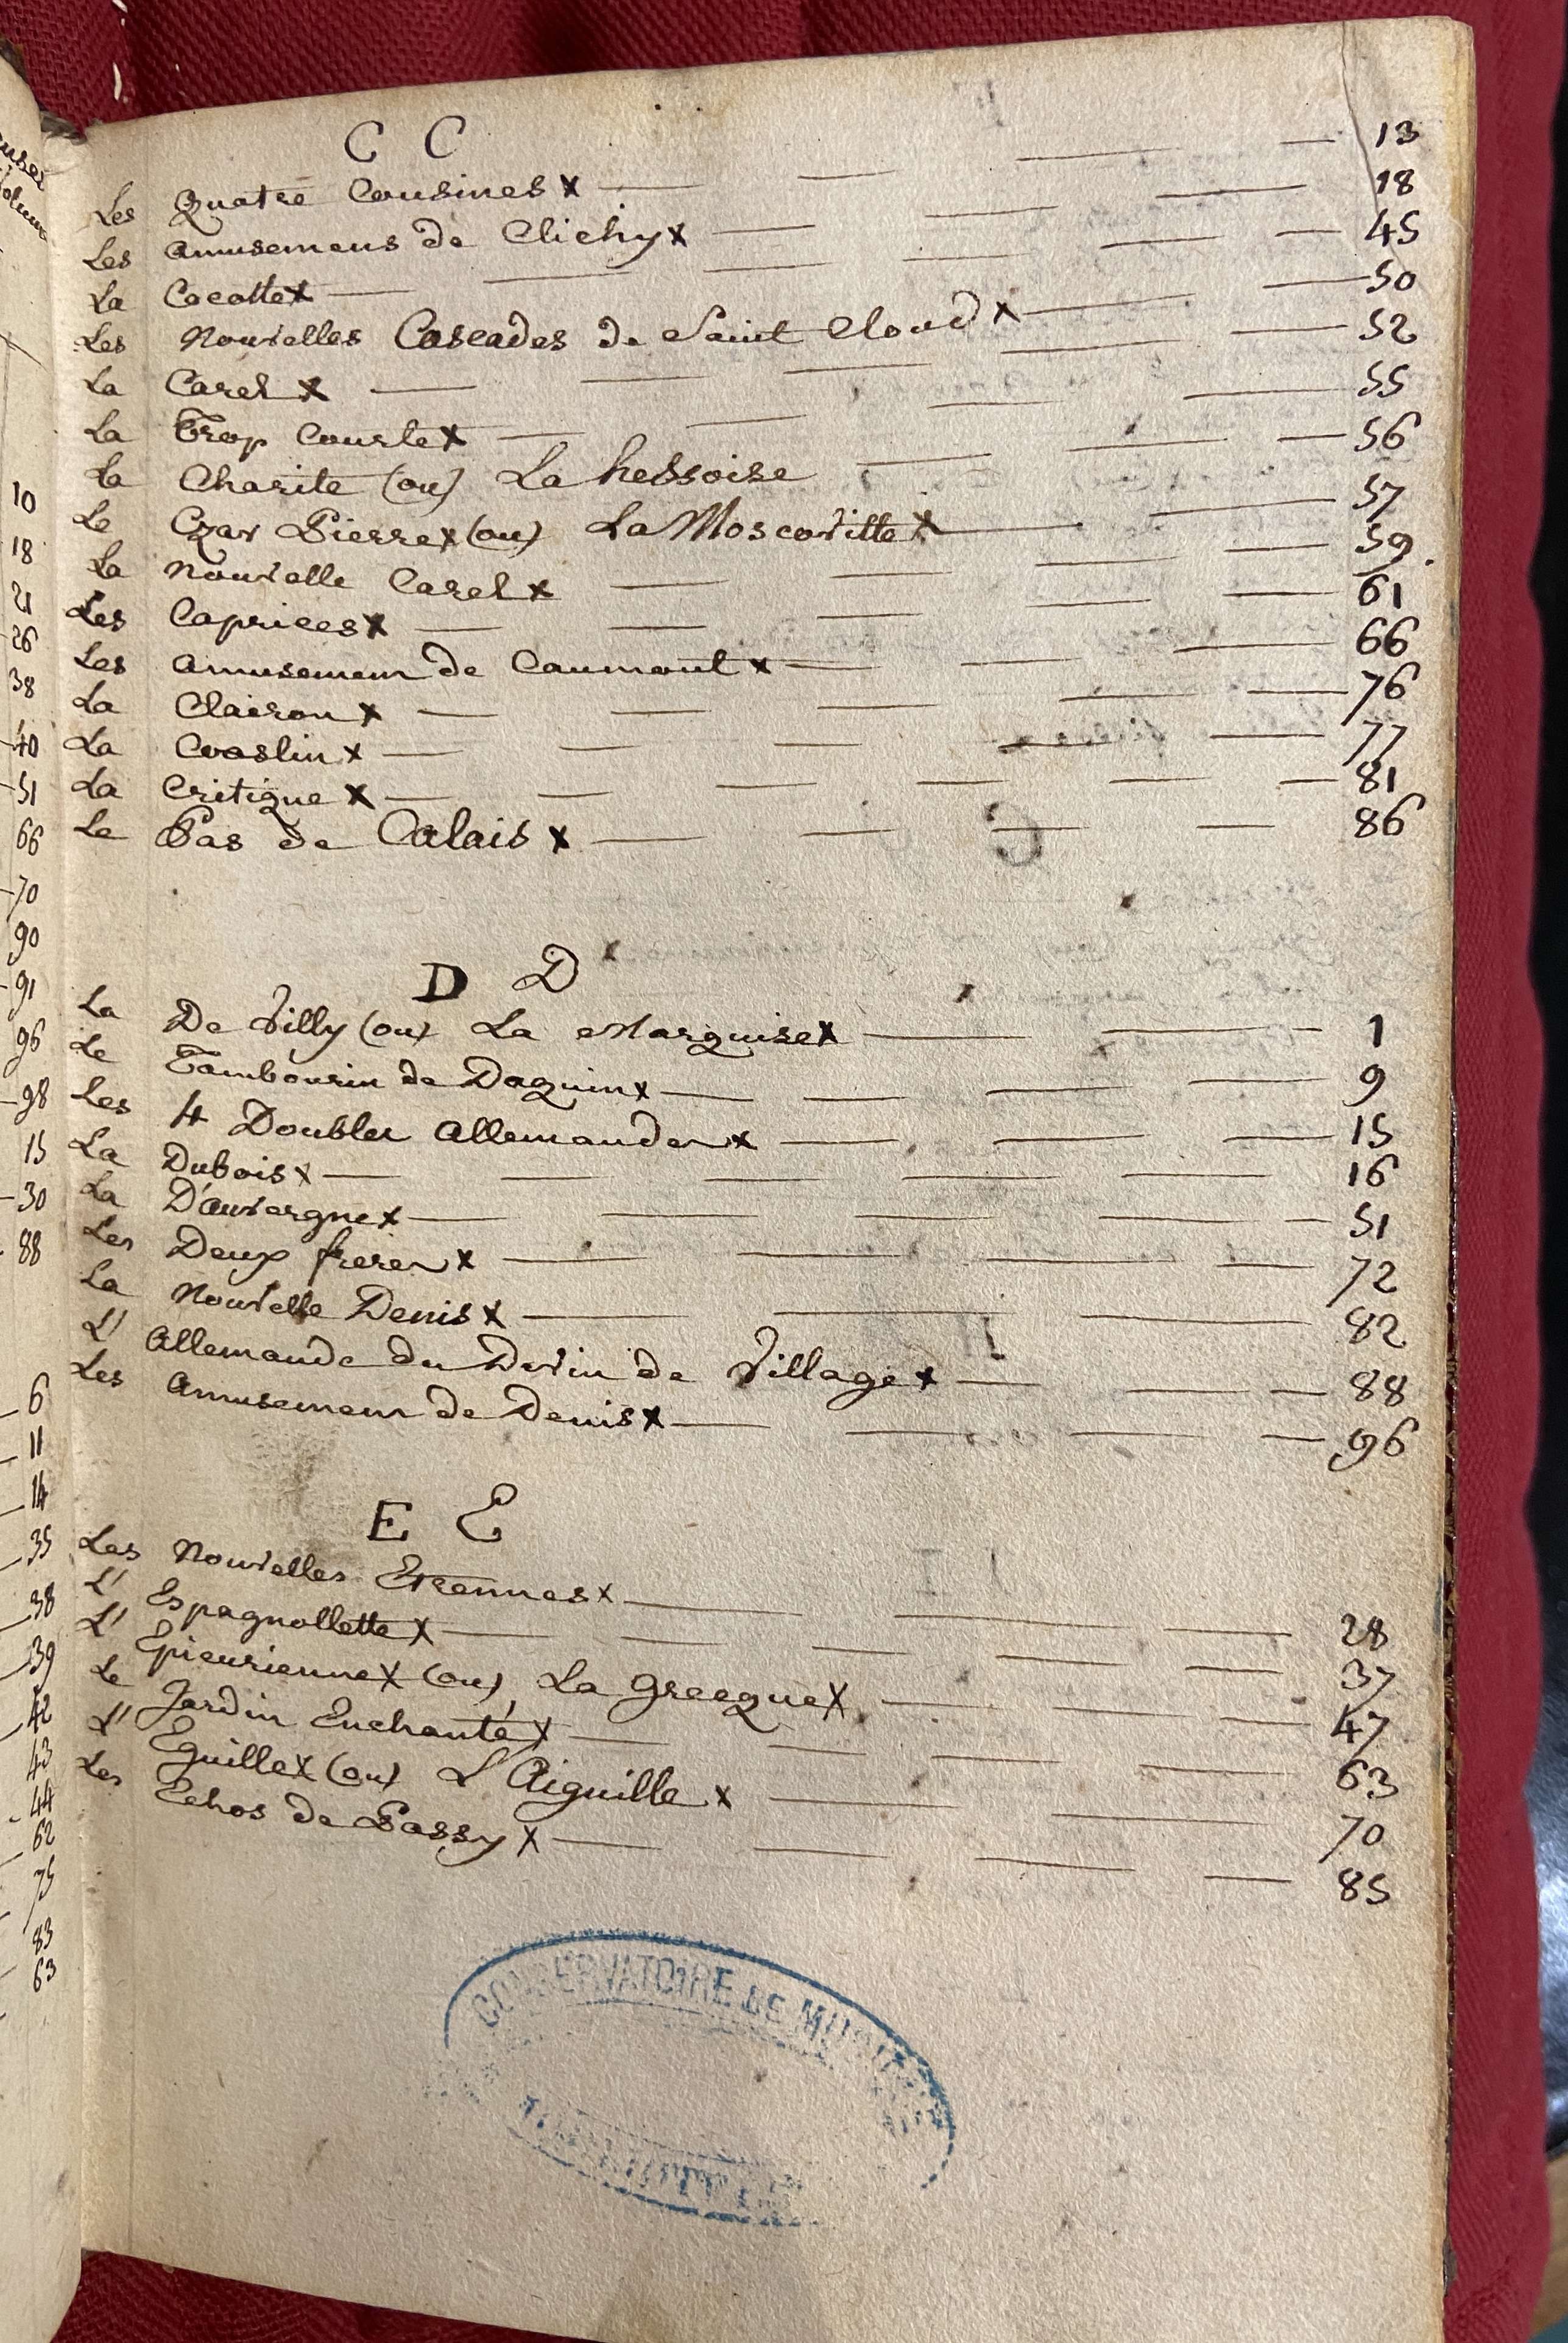 C C
Les Quatre Cousines x — 13
Les amusemens de Clichy x — 18
La Cocotte x — 45
Les Nouvelles Cascades de Saint Cloud x — 50
La Carel x — 52
La Trop Courte x — 55
La Charite (ou) La hessoise — 56
Le Czar Pierre x (ou) La Moscovitte x — 57
La Nouvelle Carel x — 59.
Les Caprices x — 61
Les amusemens de Caumont x — 66
La Clairon x — 76
La Coaslin x — 77
La Critique x — 81
Le Pas de Calais x — 86
D D
La De Villy (ou) La Marquise x — 1
Le Tambourin de Daquin x — 9
Les 4 Doubles Allemandes x — 15
La Dubois x — 16
La D'auvergne x — 51
Les Deux freres x — 72
La Nouvelle Denis x — 82
L' Allemande du Devin de Village x — 88
Les Amusemens de Denis x — 96
E E
Les Nouvelles Etrennes x — 28
L' Espagnollette x — 37
L' Epicurienne x (ou) La Grecque x — 47
Le Jardin Enchanté x — 63
L' Eguille x (ou) L'Aiguille x — 70
Les Echos de Passy x — 85
CONSERVATOIRE DE MUSIQUE
10
18
21
26
38
40
51
66
70
90
91
96
98
15
30
88
6
11
14
35
38
39
42
43
44
62
75
83
63